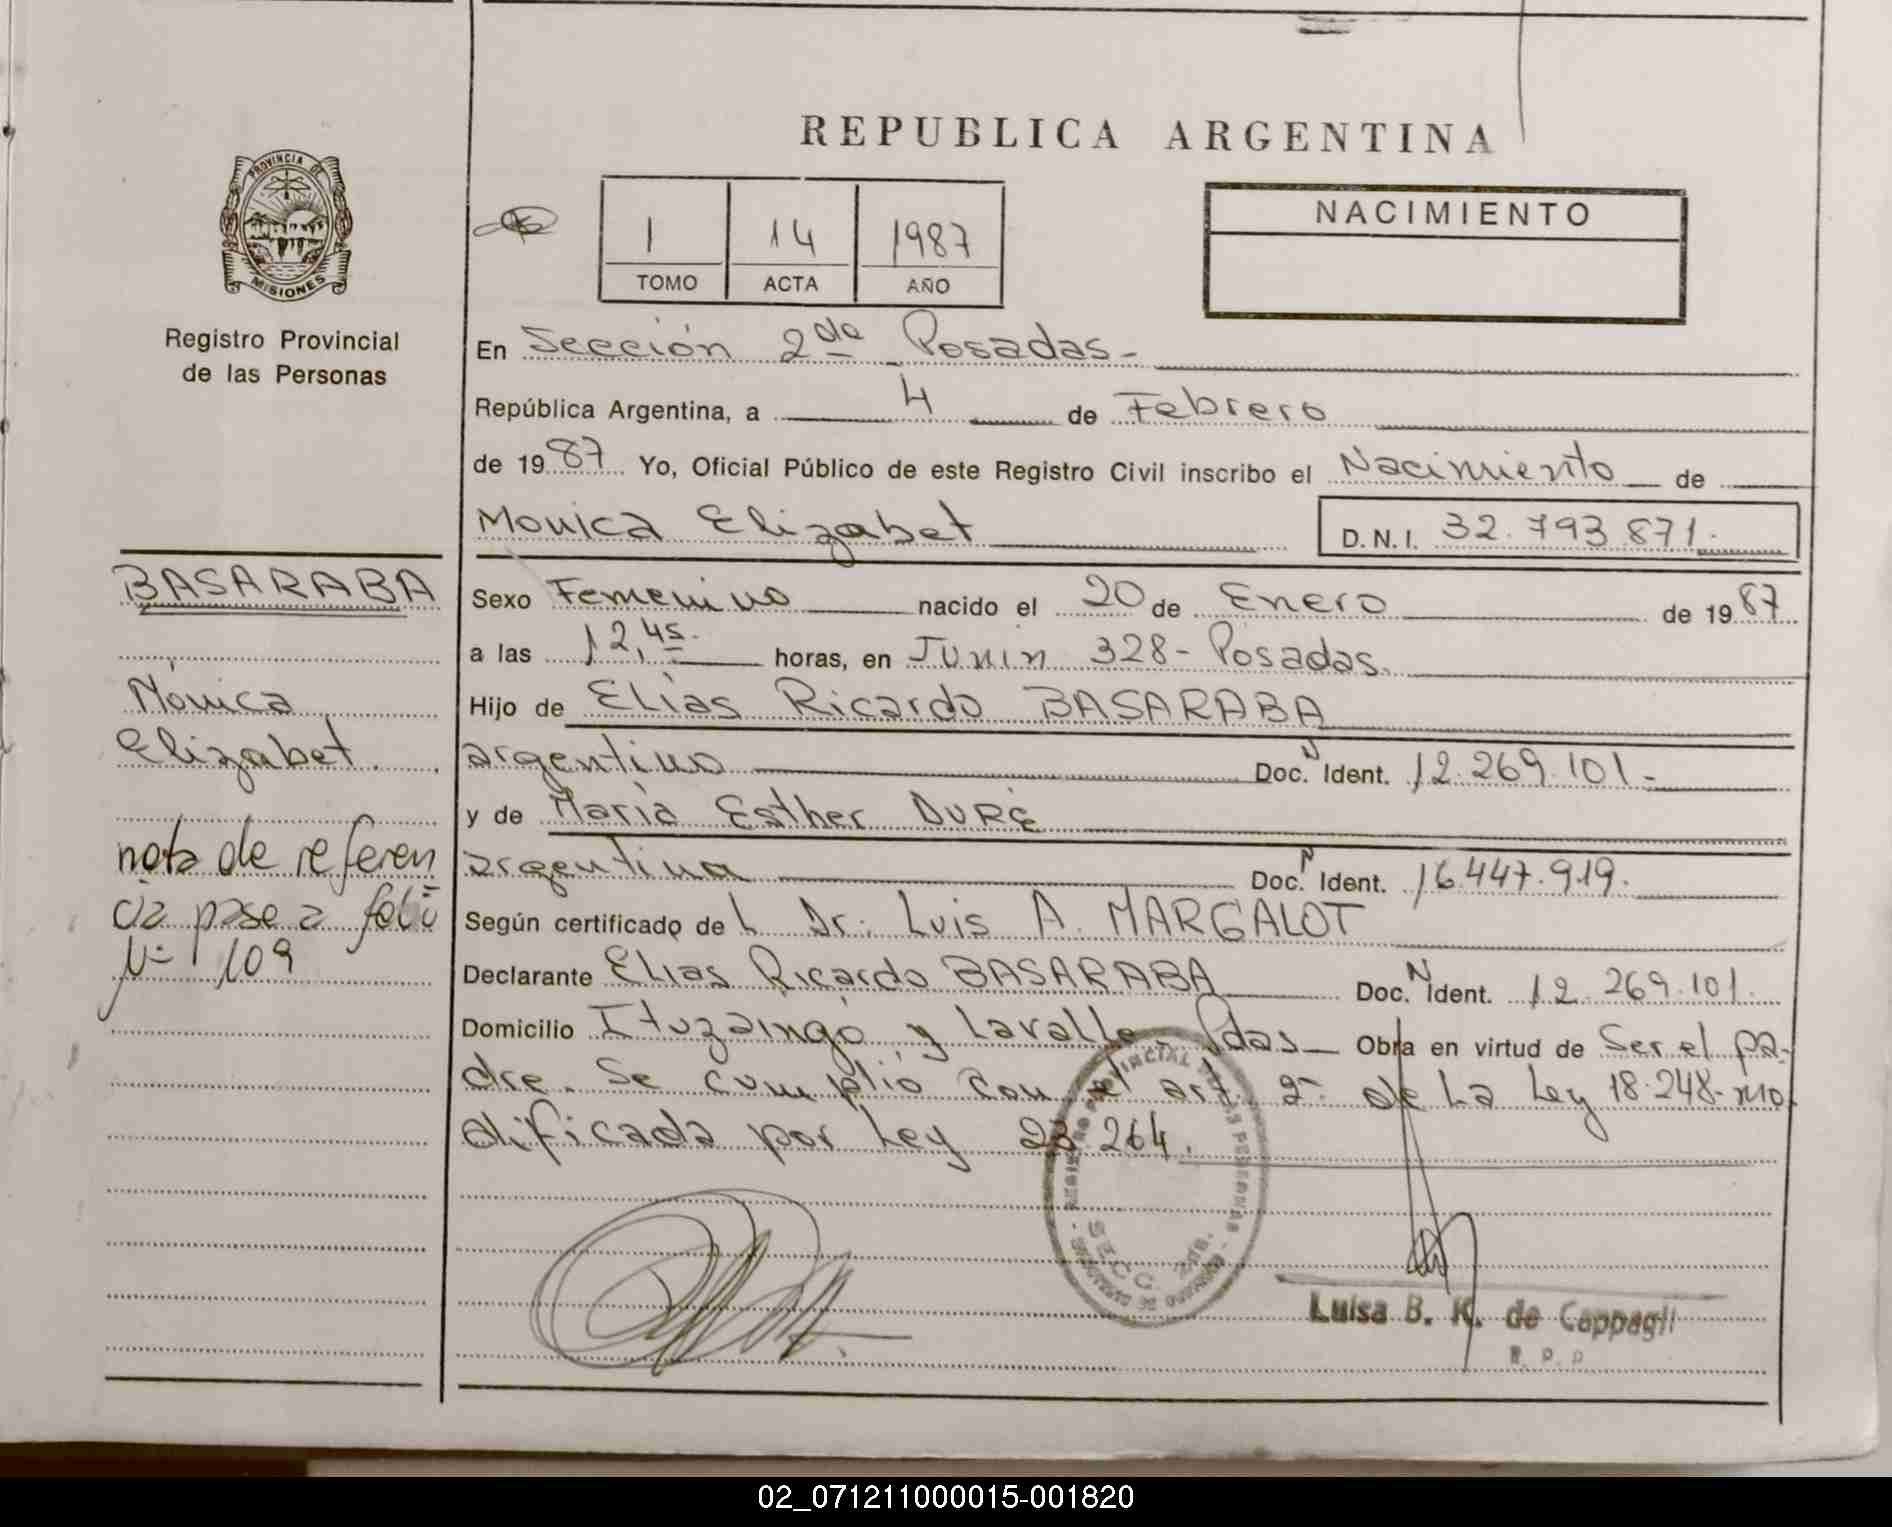 REPUBLICA ARGENTINA
PROVINCIA DE
MISIONES
Registro Provincial
de las Personas
1 14 1987
TOMO ACTA AÑO
NACIMIENTO
En Sección 2da Posadas-
República Argentina, a 4 de Febrero
de 1987 Yo, Oficial Público de este Registro Civil inscribo el Nacimiento de
Monica Elizabet D.N.I. 32.793.871.
BASARABA
Mónica
Elizabet.
nota de referen
cia pase a folio
Nº 109
Sexo Femenino nacido el 20 de Enero de 1987
a las 12,45. horas, en Junin 328- Posadas.
Hijo de Elias Ricardo BASARABA
argentino Doc. N Ident. 12.269.101.-
y de Maria Esther DURÉ
argentina Doc. N Ident. 16.447.919.
Según certificado de L Dr. Luis A. MARGALOT
Declarante Elias Ricardo BASARABA Doc. N Ident. 12.269.101.
Domicilio Ituzaingó y Lavalle- Pdas Obra en virtud de Ser el pa-
dre. Se cumplió con el art. 2º de La Ley 18.248- mo
dificada por Ley 23.264.
SECC. 2da.
Luisa B. K. de Cappagli
R. P. P
02_071211000015-001820